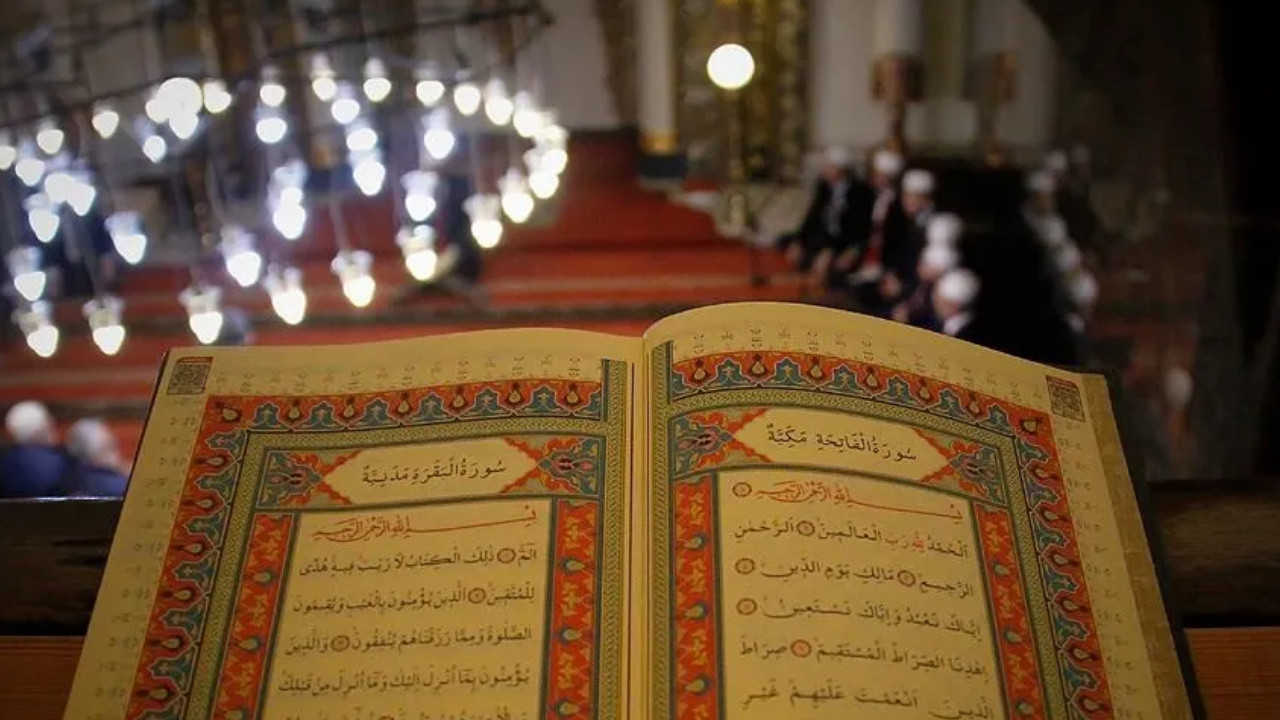 سُورَةُ الْفَاتِحَةِ مَكِّيَّةٌ
بِسْمِ اللهِ الرَّحْمٰنِ الرَّحِيمِ
اَلْحَمْدُ لِلّٰهِ رَبِّ الْعَالَمِينَ اَلرَّحْمٰنِ
الرَّحِيمِ مَالِكِ يَوْمِ الدِّينِ
اِيَّاكَ نَعْبُدُ وَاِيَّاكَ نَسْتَعِينُ
اِهْدِنَا الصِّرَاطَ الْمُسْتَقِيمَ صِرَاطَ
الَّذِينَ اَنْعَمْتَ عَلَيْهِمْ غَيْرِ
سُورَةُ الْبَقَرَةِ مَدَنِيَّةٌ
بِسْمِ اللهِ الرَّحْمٰنِ الرَّحِيمِ
الٓمٓ ذٰلِكَ الْكِتَابُ لَا رَيْبَ فِيهِ هُدًى
لِلْمُتَّقِينَ اَلَّذِينَ يُؤْمِنُونَ بِالْغَيْبِ وَيُقِيمُونَ
الصَّلٰوةَ وَمِمَّا رَزَقْنَاهُمْ يُنْفِقُونَ وَالَّذِينَ
يُؤْمِنُونَ بِمَا اُنْزِلَ اِلَيْكَ وَمَا اُنْزِلَ مِنْ قَبْلِكَ